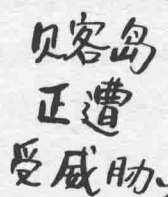 贝客岛
正遭
受威胁、